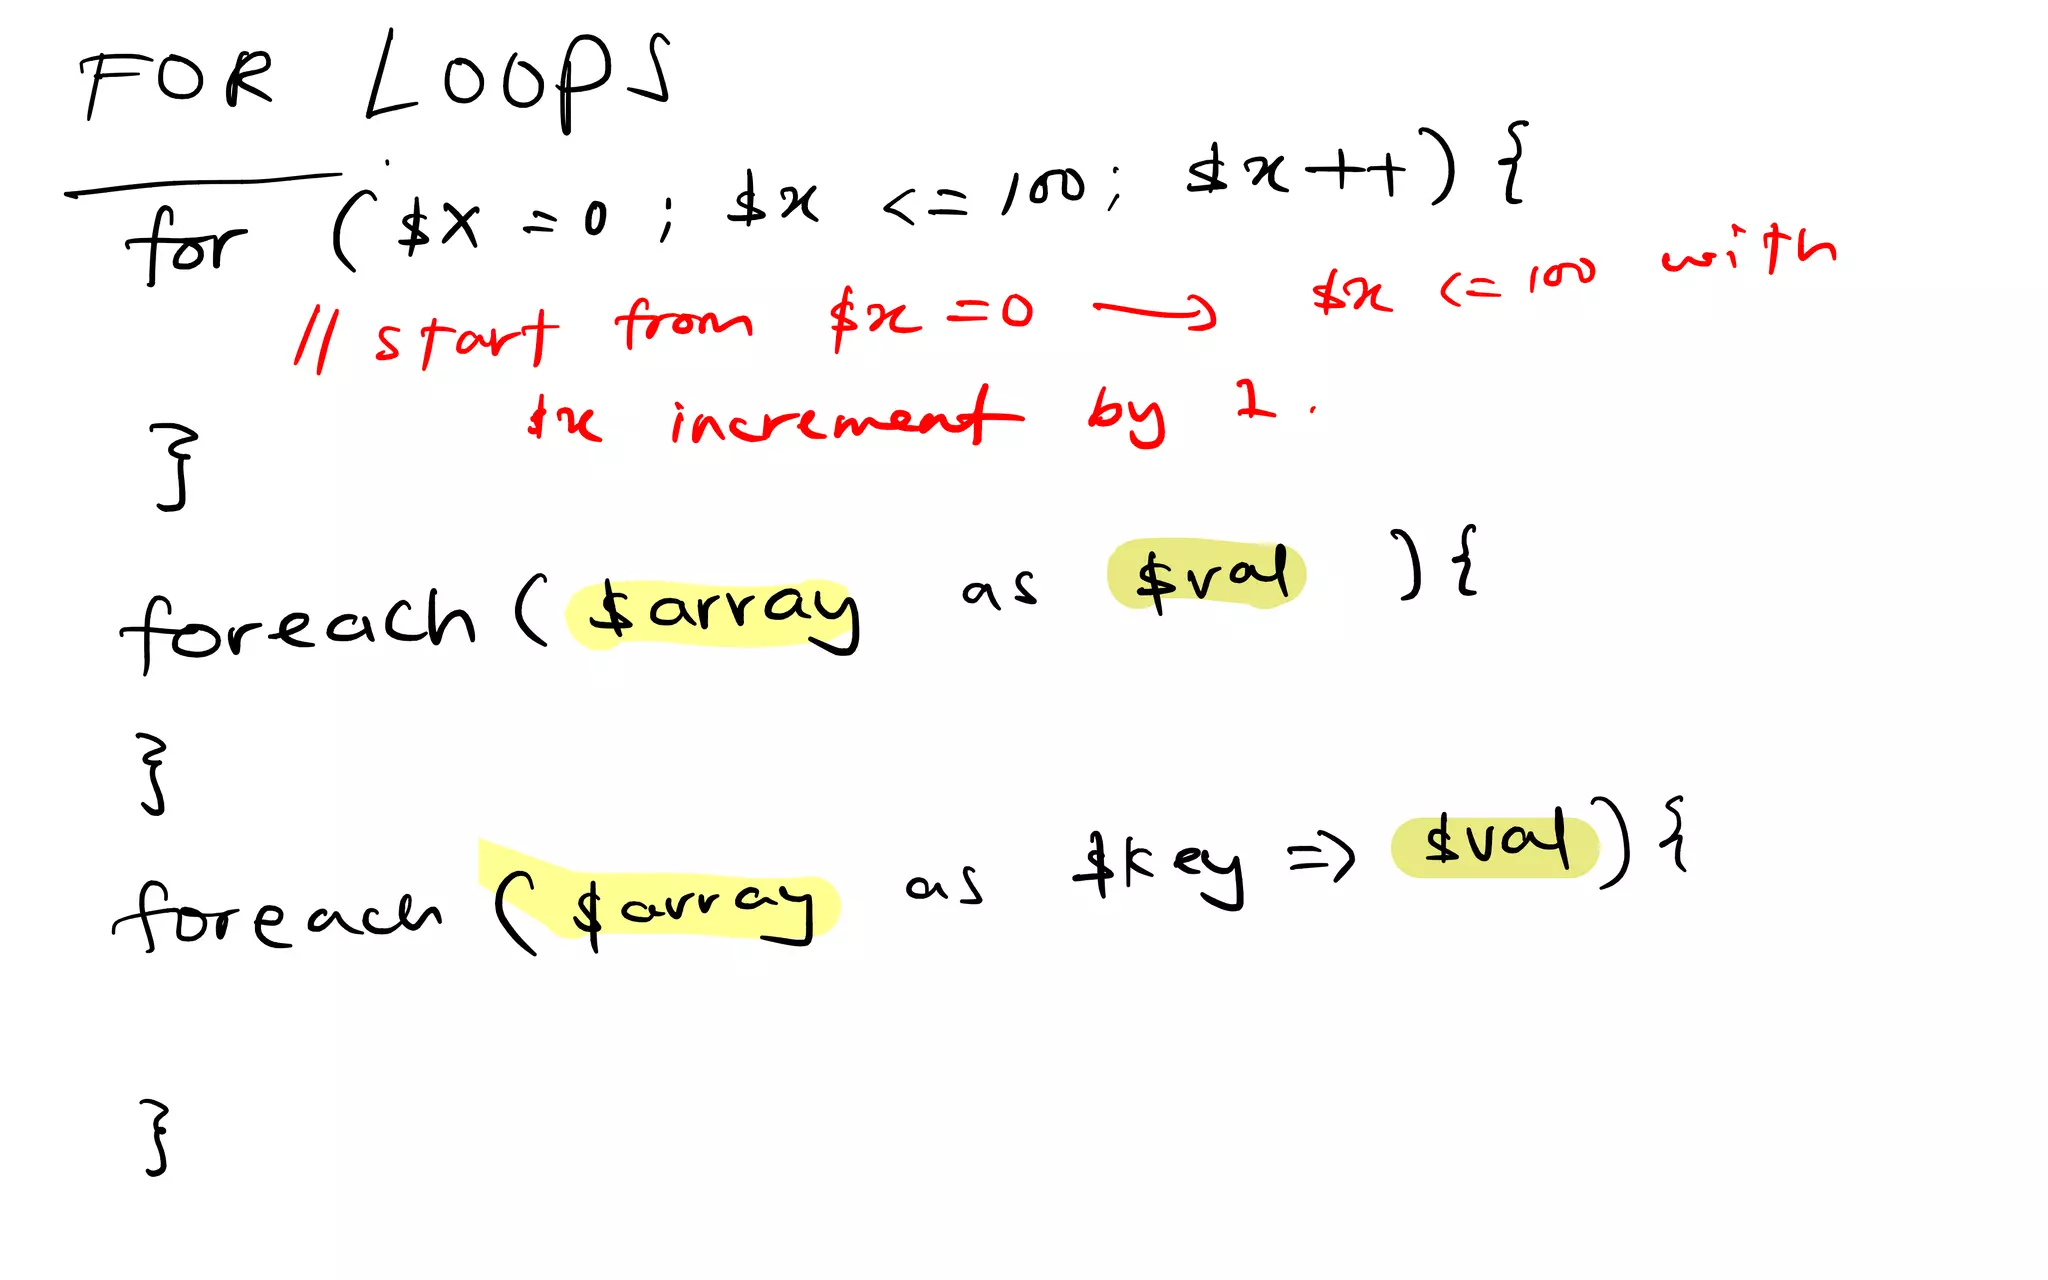 FOR LOOPS
for ($X = 0 ; $x <= 100; $x ++) {
// start from $x = 0 → $x <= 100 with
$x increment by 1.
}
foreach ( $array as $val ) {
}
foreach ( $array as $key => $val) {
}